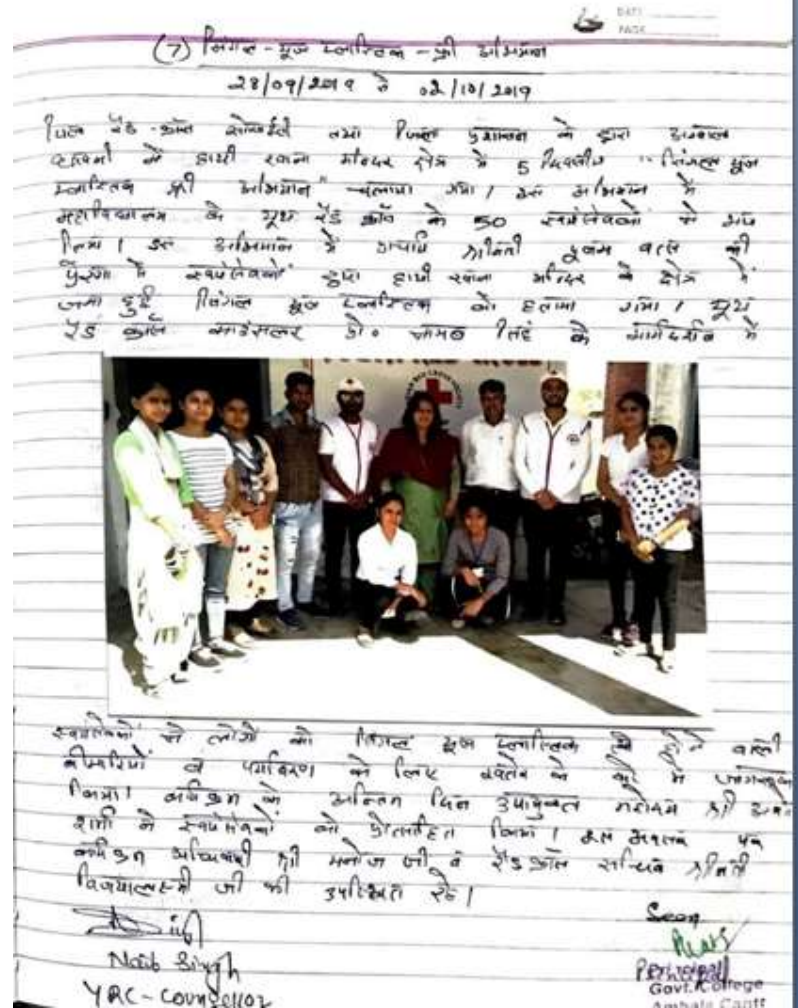 DATE
PAGE
(7) सिंगल - यूज प्लास्टिक - फ्री अभियान
28/09/2019 से 02/10/2019
जिला रैड - क्रॉस सोसाईटी तथा जिला प्रशासन के द्वारा अम्बाला
छावनी में हाथी खाना मन्दिर क्षेत्र में 5 दिवसीय "सिंगल यूज
प्लास्टिक फ्री अभियान" चलाया गया। इस अभियान में
महाविद्यालय के यूथ रैड क्रॉस के 50 स्वयंसेवकों ने भाग
लिया। इस अभियान में प्राचार्या श्रीमती पूनम वत्स की
प्रेरणा से स्वयंसेवकों द्वारा हाथी खाना मन्दिर के क्षेत्र में
जमा हुई सिंगल यूज प्लास्टिक को हटाया गया। यूथ
रैड क्रॉस काउंसलर डॉ० नायब सिंह के मार्गदर्शन में
स्वयंसेवकों ने लोगों को सिंगल यूज प्लास्टिक से होने वाली
बीमारियों व पर्यावरण के लिए खतरे के बारे में जागरूक
किया। कार्यक्रम के अन्तिम दिन उपायुक्त महोदय श्री
शर्मा ने स्वयंसेवकों को प्रोत्साहित किया। इस अवसर पर
कार्यक्रम अधिकारी श्री मनोज जी व रैड क्रॉस सचिव श्रीमती
विजयालक्ष्मी जी की उपस्थिति रही।
Naib Singh
YRC - Counsellor
Seen
Principal
Govt. College
Ambala Cantt